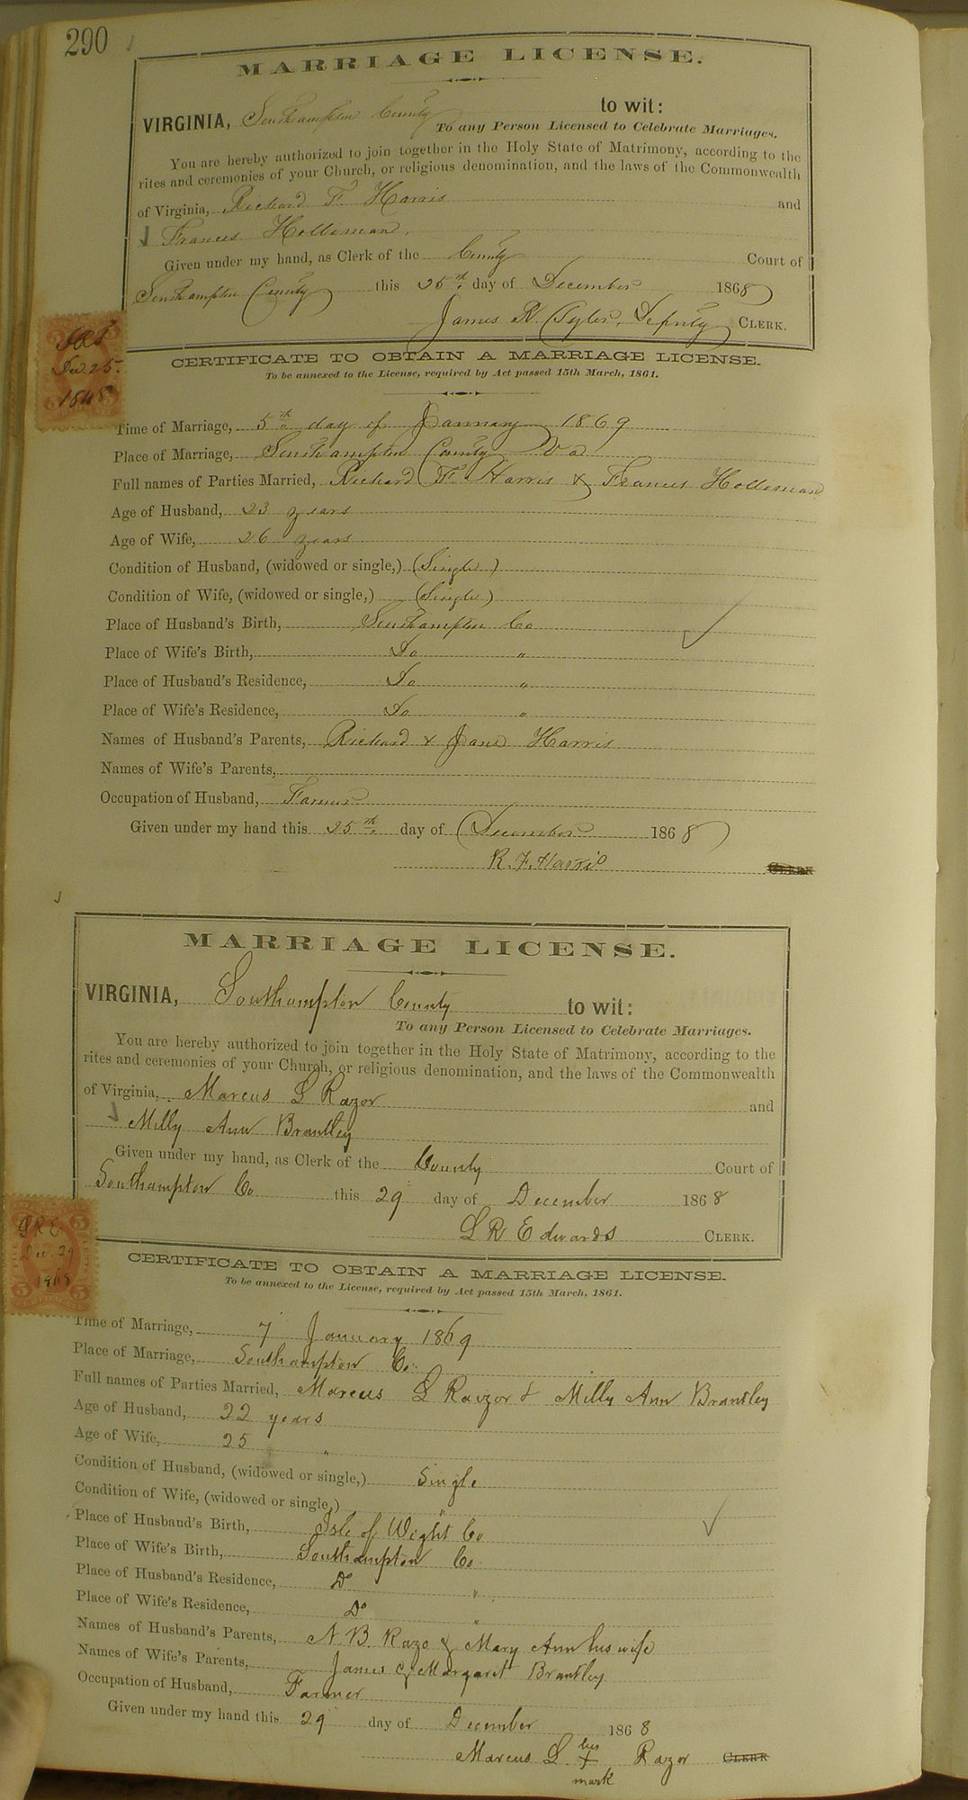 290
MARRIAGE LICENSE.
VIRGINIA, Southampton County to wit:
To any Person Licensed to Celebrate Marriages.
You are hereby authorized to join together in the Holy State of Matrimony, according to the
rites and ceremonies of your Church, or religious denomination, and the laws of the Commonwealth
of Virginia, Richard F. Harris and
Frances Holloman.
Given under my hand, as Clerk of the County Court of
Southampton County this 25th day of December 1868
James R. Tyler, Deputy CLERK.
Dec 25.
1868
CERTIFICATE TO OBTAIN A MARRIAGE LICENSE.
To be annexed to the License, required by Act passed 15th March, 1861.
Time of Marriage, 5th day of January 1869
Place of Marriage, Southampton County Va
Full names of Parties Married, Richard F. Harris & Frances Holloman
Age of Husband, 23 years
Age of Wife, 26 years
Condition of Husband, (widowed or single,) (Single)
Condition of Wife, (widowed or single,) (Single)
Place of Husband's Birth, Southampton Co
Place of Wife's Birth, Do "
Place of Husband's Residence, Do "
Place of Wife's Residence, Do "
Names of Husband's Parents, Richard & Jane Harris
Names of Wife's Parents,
Occupation of Husband, Farmer
Given under my hand this 25th day of December 1868
R. F. Harris CLERK
MARRIAGE LICENSE.
VIRGINIA, Southampton County to wit:
To any Person Licensed to Celebrate Marriages.
You are hereby authorized to join together in the Holy State of Matrimony, according to the
rites and ceremonies of your Church, or religious denomination, and the laws of the Commonwealth
of Virginia, Marcus L Razor and
Milly Ann Brantley
Given under my hand, as Clerk of the County Court of
Southampton Co this 29 day of December 1868
L R Edwards CLERK.
5 5
Dec. 29
1868
CERTIFICATE TO OBTAIN A MARRIAGE LICENSE.
To be annexed to the License, required by Act passed 15th March, 1861.
Time of Marriage, 7 January 1869
Place of Marriage, Southampton Co.
Full names of Parties Married, Marcus L Razor & Milly Ann Brantley
Age of Husband, 22 years
Age of Wife, 25 "
Condition of Husband, (widowed or single,) Single
Condition of Wife, (widowed or single,) "
Place of Husband's Birth, Isle of Wight Co
Place of Wife's Birth, Southampton Co
Place of Husband's Residence, Do "
Place of Wife's Residence, Do "
Names of Husband's Parents, N. B. Razo & Mary Ann his wife
Names of Wife's Parents, James & Margaret Brantley
Occupation of Husband, Farmer
Given under my hand this 29 day of December 1868
Marcus L his + mark Razor CLERK